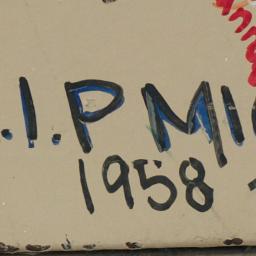 .I.P MI
1958 -